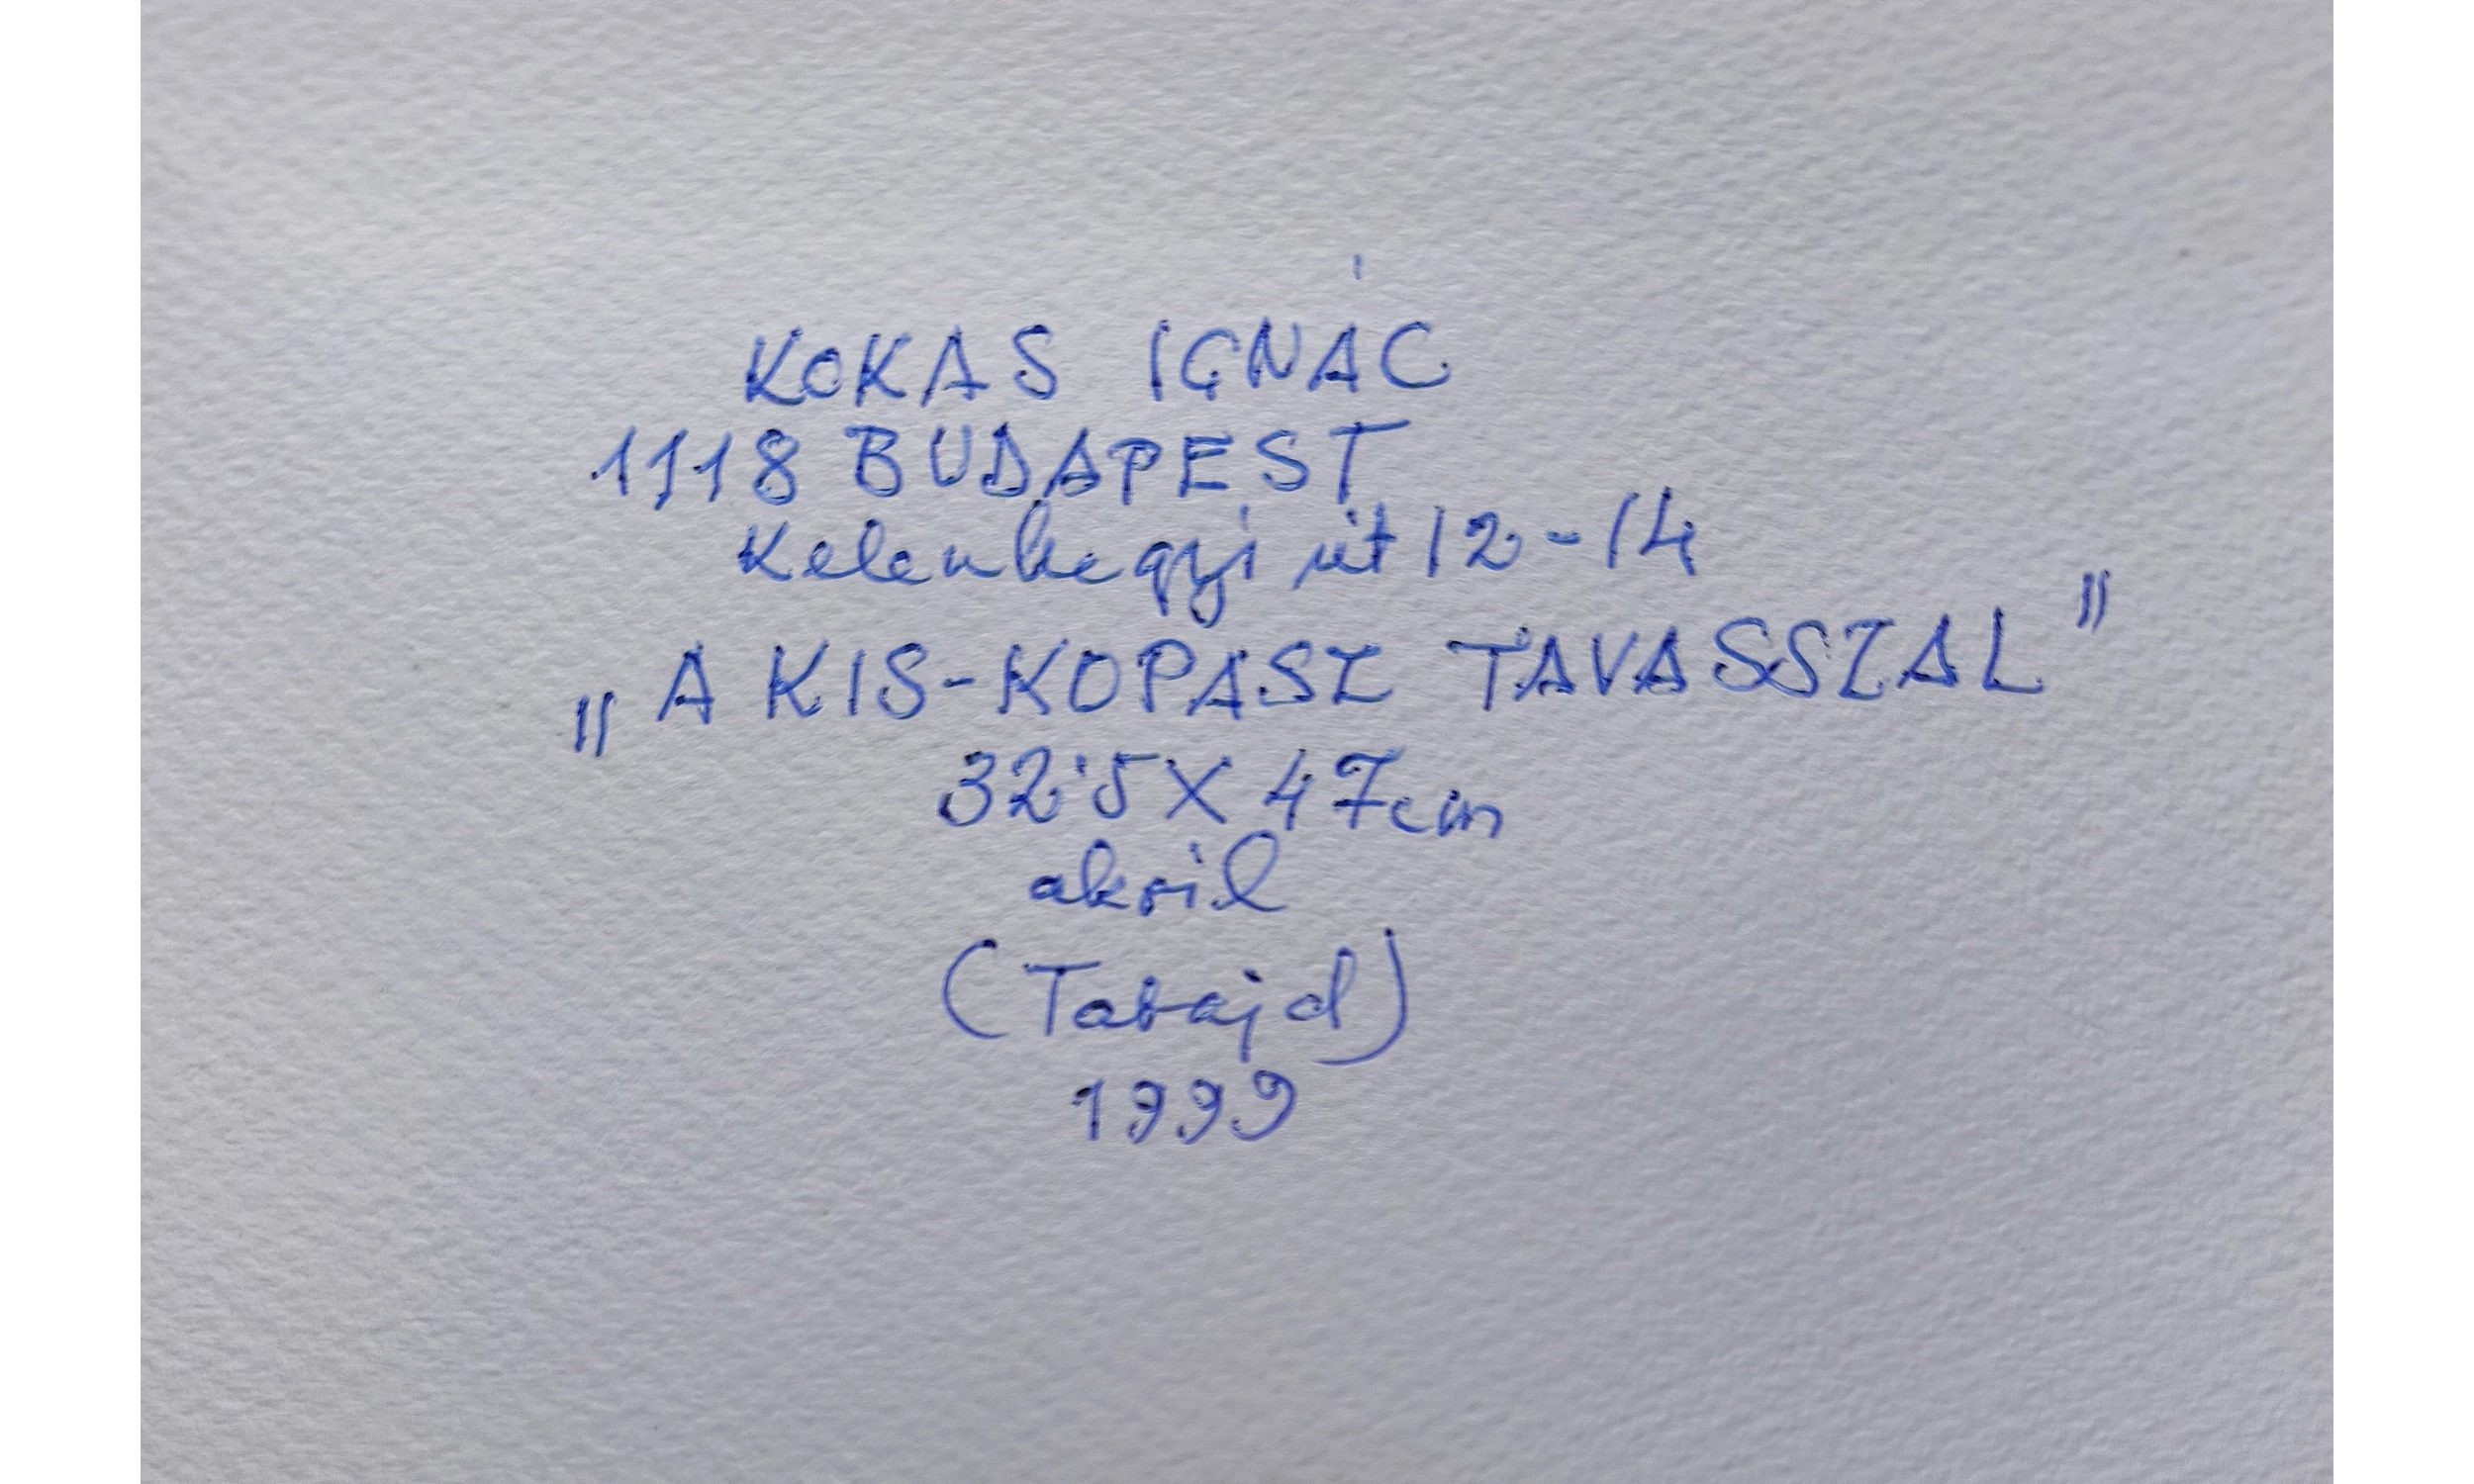 KOKAS IGNÁC
1118 BUDAPEST
Kelenhegyi út 12-14
„A KIS-KOPASZ TAVASSZAL”
32'5 X 47cm
akril
(Tabajd)
1999